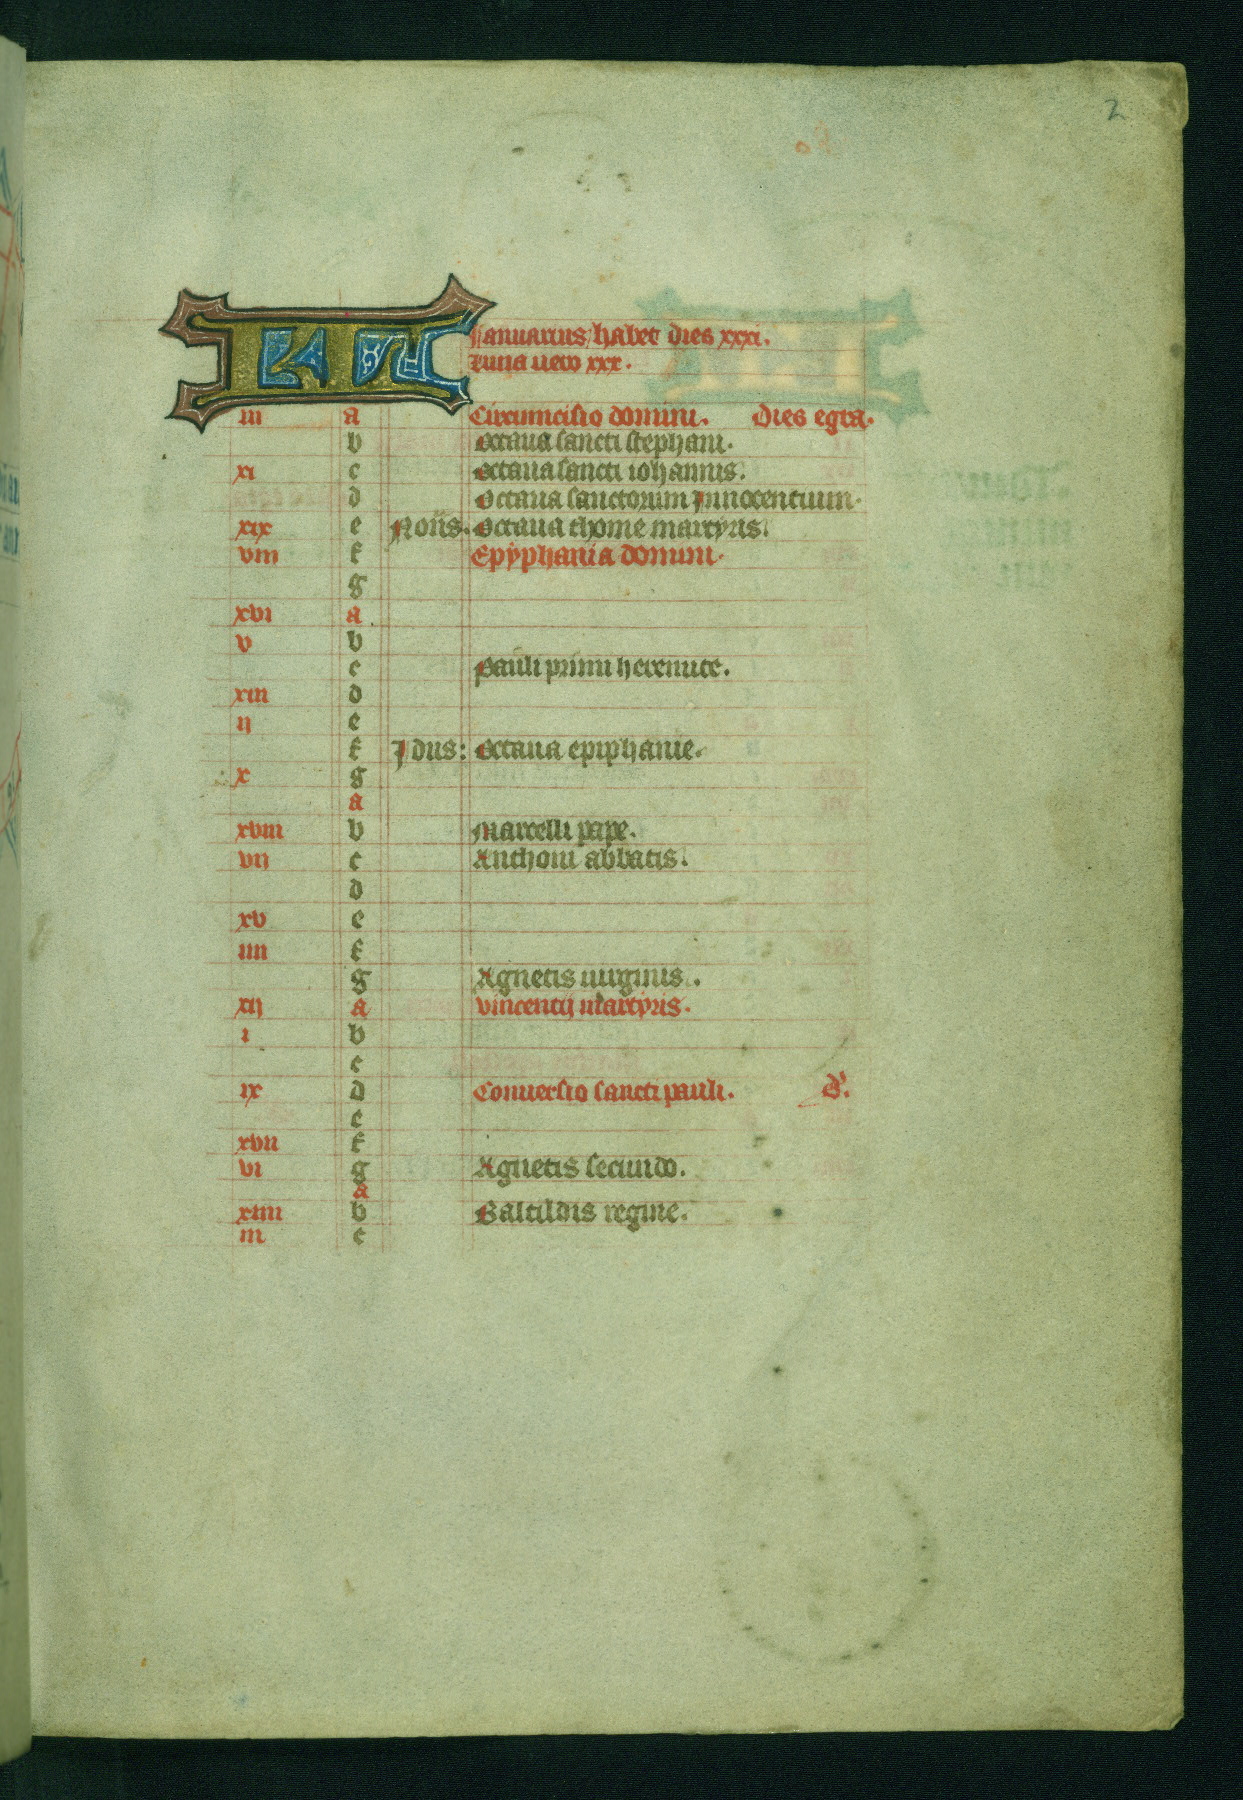 2
KL Januarius habet dies xxxi.
Luna vero xxx.
iii a Circumcisio domini. Dies egra.
b Octaua sancti stephani.
xi c Octaua sancti iohannis.
d Octaua sanctorum Innocentium.
xix e Nonis. Octaua thome martyris.
viii f Epyphania domini.
g
xvi a
v b
c Pauli primi heremite.
xiii d
ii e
f Idus: Octaua epiphanie.
x g
a
xviii b Marcelli pape.
vii c Anthoni abbatis.
d
xv e
iiii f
g Agnetis uirginis.
xii a vincentij martyris.
i b
c
ix d Conuersio sancti pauli. D.
e
xvii f
vi g Agnetis secundo.
a
xiiii b Baltildis regine.
iii c